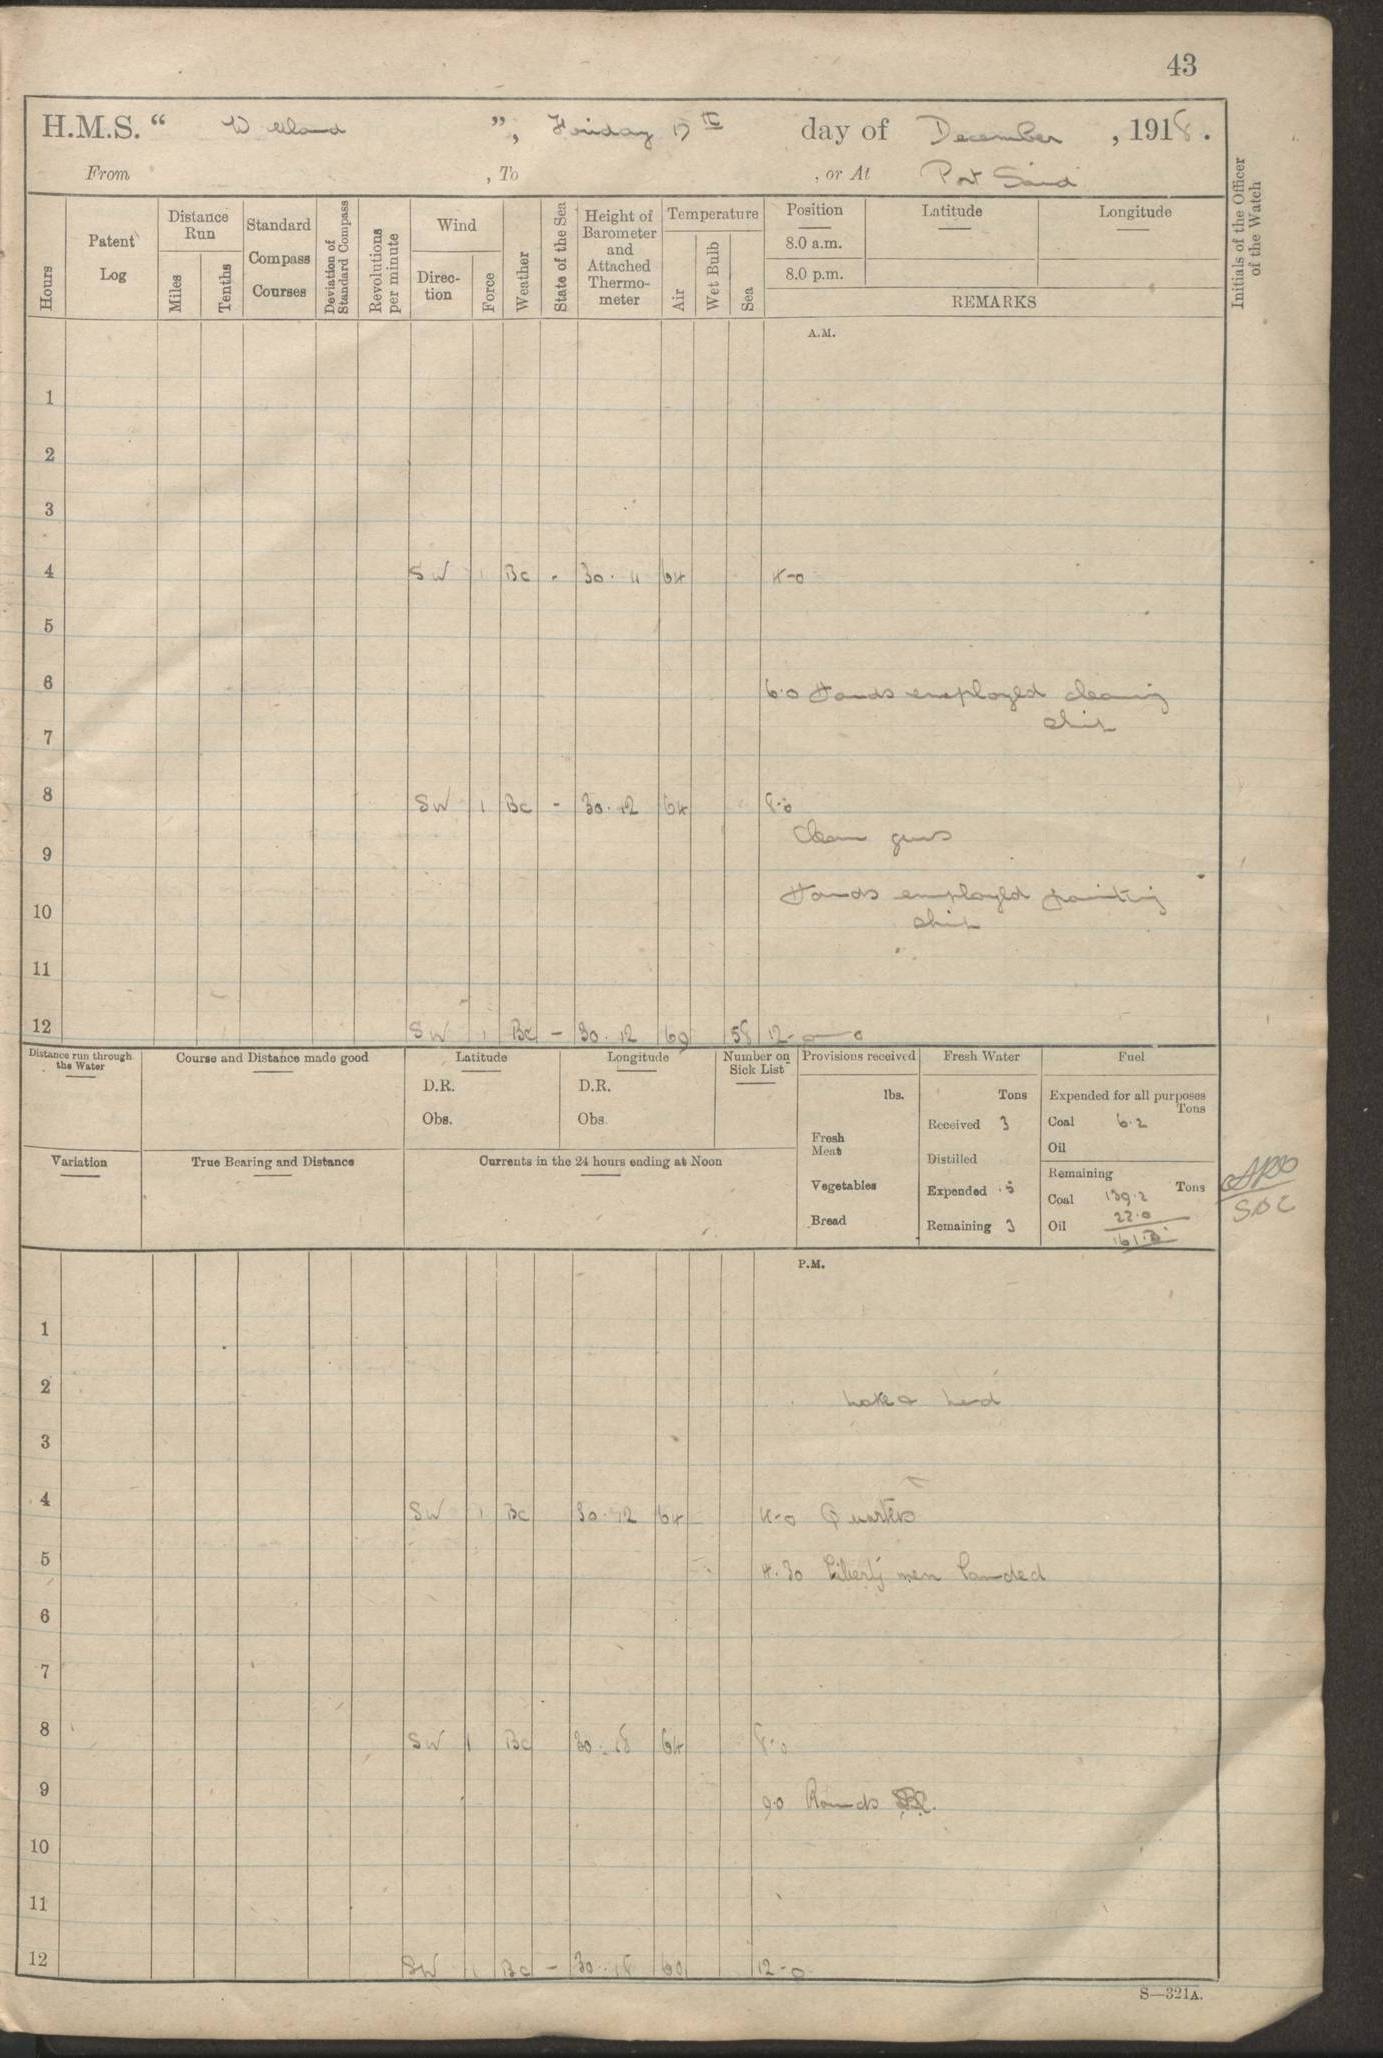 43
H.M.S. “ Welland ”, Friday day of December , 1918.
From , To , or At Port Said
Hours
Patent Log
Distance Run
Miles
Tenths
Standard Compass Courses
Deviation of Standard Compass
Revolutions per minute
Wind
Direction
Force
Weather
State of the Sea
Height of Barometer and Attached Thermometer
Temperature
Air
Wet Bulb
Sea
Position
8.0 a.m.
8.0 p.m.
Latitude
Longitude
REMARKS
Initials of the Officer of the Watch
A.M.
1
2
3
4 SW 1 Bc - 30.11 64 4-0
5
6 6.0 Hands employed cleaning
ship
7
8 SW 1 Bc - 30.12 64 8.0
Clean guns
9
Hands employed painting
10 ship
11
12 SW 1 Bc - 30.12 60 58 12-0
Distance run through the Water
Course and Distance made good
Latitude
D.R.
Obs.
Longitude
D.R.
Obs.
Number on Sick List
Provisions received
lbs.
Fresh Meat
Vegetables
Bread
Fresh Water
Tons
Received 3
Distilled
Expended .5
Remaining 3
Fuel
Expended for all purposes
Tons
Coal 6.2
Oil
Remaining
Tons
Coal 139.2
Oil 22.0
Variation
True Bearing and Distance
Currents in the 24 hours ending at Noon
P.M.
1
2
3
4 SW 1 Bc 30.12 64 4-0 Quarters
5 4.30 Liberty men landed
6
7
8 SW 1 Bc 30.18 64 8-0
9 9.0 Rounds
10
11
12 SW 1 Bc - 30.18 60 12-0
S—321A.